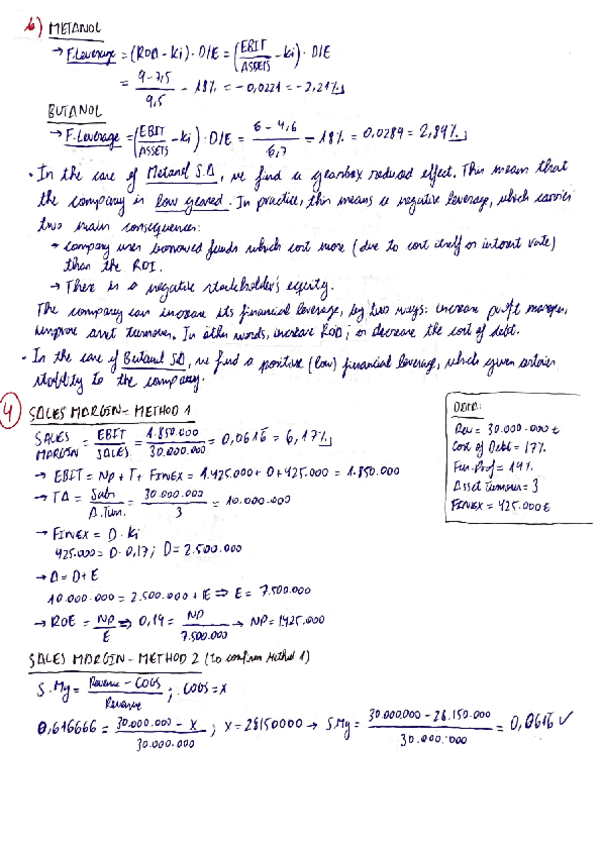 b) METANOL
→ F.Leverage = (ROA - Ki) · D/E = (EBIT/ASSETS - Ki) · D/E
= 9-7,5/9,5 - 18% = -0,0221 = -2,21%
BUTANOL
→ F.Leverage = (EBIT/ASSETS - Ki) · D/E = 6-4,6/6,7 - 18% = 0,0289 = 2,89%
• In the case of Metanol S.A, we find a gearbox reduced effect. This means that
the company is low geared. In practice, this means a negative leverage, which carries
two main consequences:
→ Company uses borrowed funds which cost more (due to cost itself or interest rate)
than the ROI.
→ There is a negative stockholder's equity.
The company can increase its financial leverage, by two ways: increase profit margin,
improve asset turnover. In other words, increase ROI; or decrease the cost of debt.
• In the case of Butanol SA, we find a positive (low) financial leverage, which gives certain
stability to the company.
4 SALES MARGIN - METHOD 1
SALES MARGIN = EBIT/SALES = 1.850.000/30.000.000 = 0,0616 = 6,17%
→ EBIT = NP + T + FINEX = 1.425.000 + 0 + 425.000 = 1.850.000
→ TA = Sales/A.Turn. = 30.000.000/3 = 10.000.000
→ FINEX = D · Ki
425.000 = D · 0,17; D = 2.500.000
→ A = D + E
10.000.000 = 2.500.000 + E ⇒ E = 7.500.000
→ ROE = NP/E ⇒ 0,19 = NP/7.500.000 → NP = 1425.000
DATA:
Rev = 30.000.000 €
Cost of Debt = 17%
Fin. Prof = 19%
Asset Turnover = 3
FINEX = 425.000€
SALES MARGIN - METHOD 2 (to confirm Method 1)
S.Mg = Revenue - COGS/Revenue; COGS = X
0,616666 = 30.000.000 - X/30.000.000; X = 28150000 → S.Mg = 30.000.000 - 28.150.000/30.000.000 = 0,0616 ✓